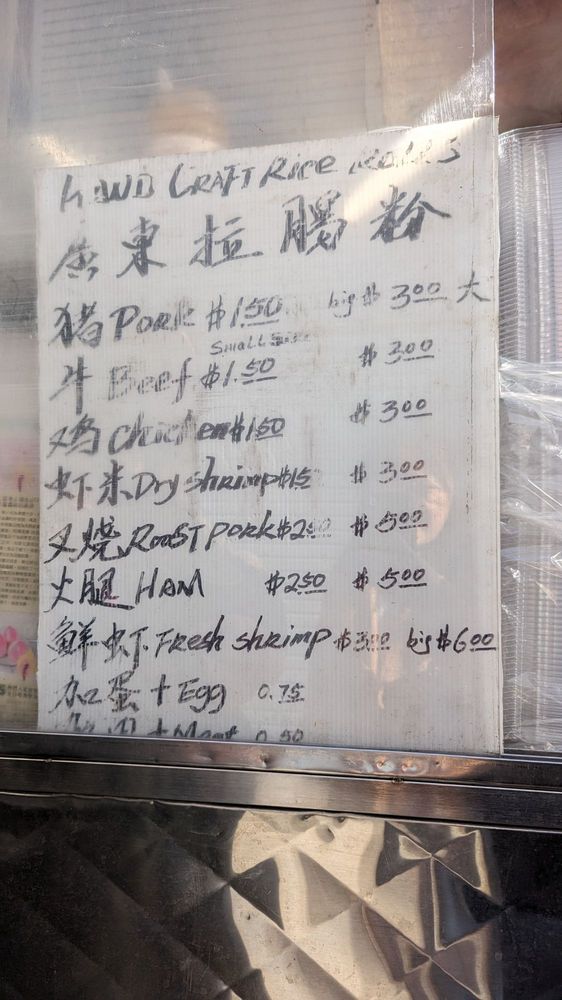 HAND CRAFT Rice ROLLS
廣東拉腸粉
猪 Pork $1.50 big $ 3.00 大
Small Size
牛 Beef $1.50 $ 3.00
鸡 Chicken $1.50 $ 3.00
虾米 Dry shrimp $1.5 $ 3.00
叉燒 ROAST PORK $2.50 $ 5.00
火腿 HAM $2.50 $ 5.00
鮮虾 Fresh shrimp $3.00 big $6.00
加蛋 + Egg 0.75
+ Meat 0.50